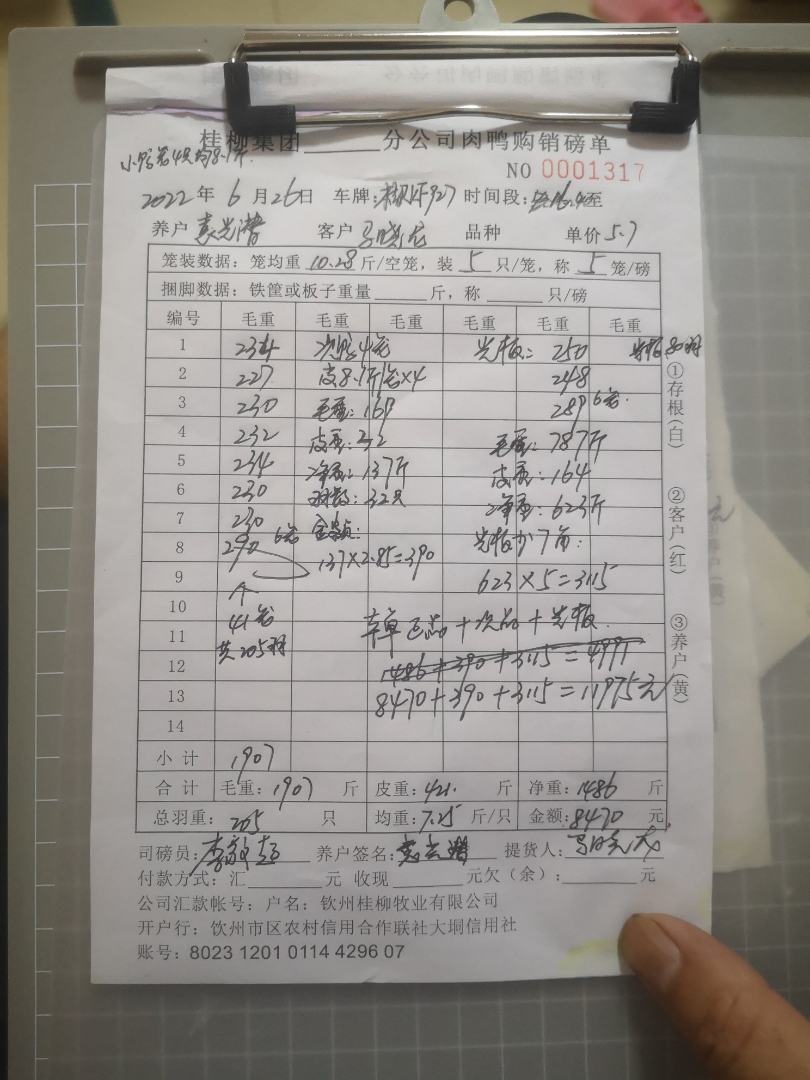 桂柳集团______分公司肉鸭购销磅单
NO 0001317
2022年6月26日 车牌: 时间段: 至
养户 袁光潜 客户 马晓龙 品种 单价 5.7
笼装数据：笼均重 10.28 斤/空笼，装 5 只/笼，称 5 笼/磅
捆脚数据：铁筐或板子重量______斤，称______只/磅
编号 毛重 毛重 毛重 毛重 毛重 毛重
1 234 次鸭4笼 光板: 250
2 227 皮8.1斤/笼×4 248
3 230 毛重: 169 289 6笼
4 232 皮重: 32 毛重: 787斤
5 234 净重: 137斤 皮重: 164
6 230 羽数: 32只 净重: 623斤
7 230 金额: 光板少7角:
8 290 6笼 137×2.85=390
9 623×5=3115
10 个
11 41笼 正品+次品+光板
共205羽
12 1486+390+3115=4991
13 8470+390+3115=11975元
14
小计 1907
合计 毛重：1907 斤 皮重：421. 斤 净重：1486 斤
总羽重： 205 只 均重：7.25 斤/只 金额：8470 元
司磅员： 养户签名：袁光潜 提货人：马晓龙
付款方式：汇______元 收现______元欠（余）：______元
公司汇款帐号：户名：钦州桂柳牧业有限公司
开户行：钦州市区农村信用合作联社大垌信用社
账号：8023 1201 0114 4296 07
①存根(白)
②客户(红)
③养户(黄)